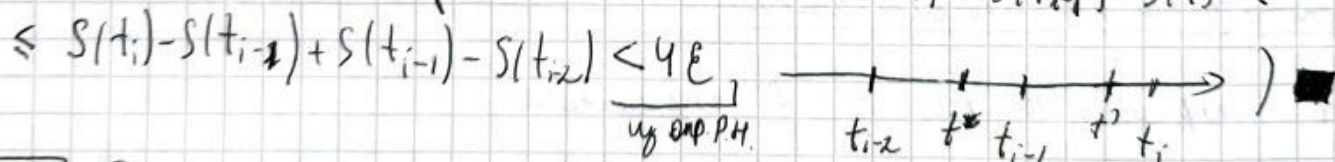 ≤ S(t_i)-S(t_{i-1})+S(t_{i-1})-S(t_{i-2}) < 4ε, )■
из опр. Р.Н.
t_{i-2} t* t_{i-1} t' t_i